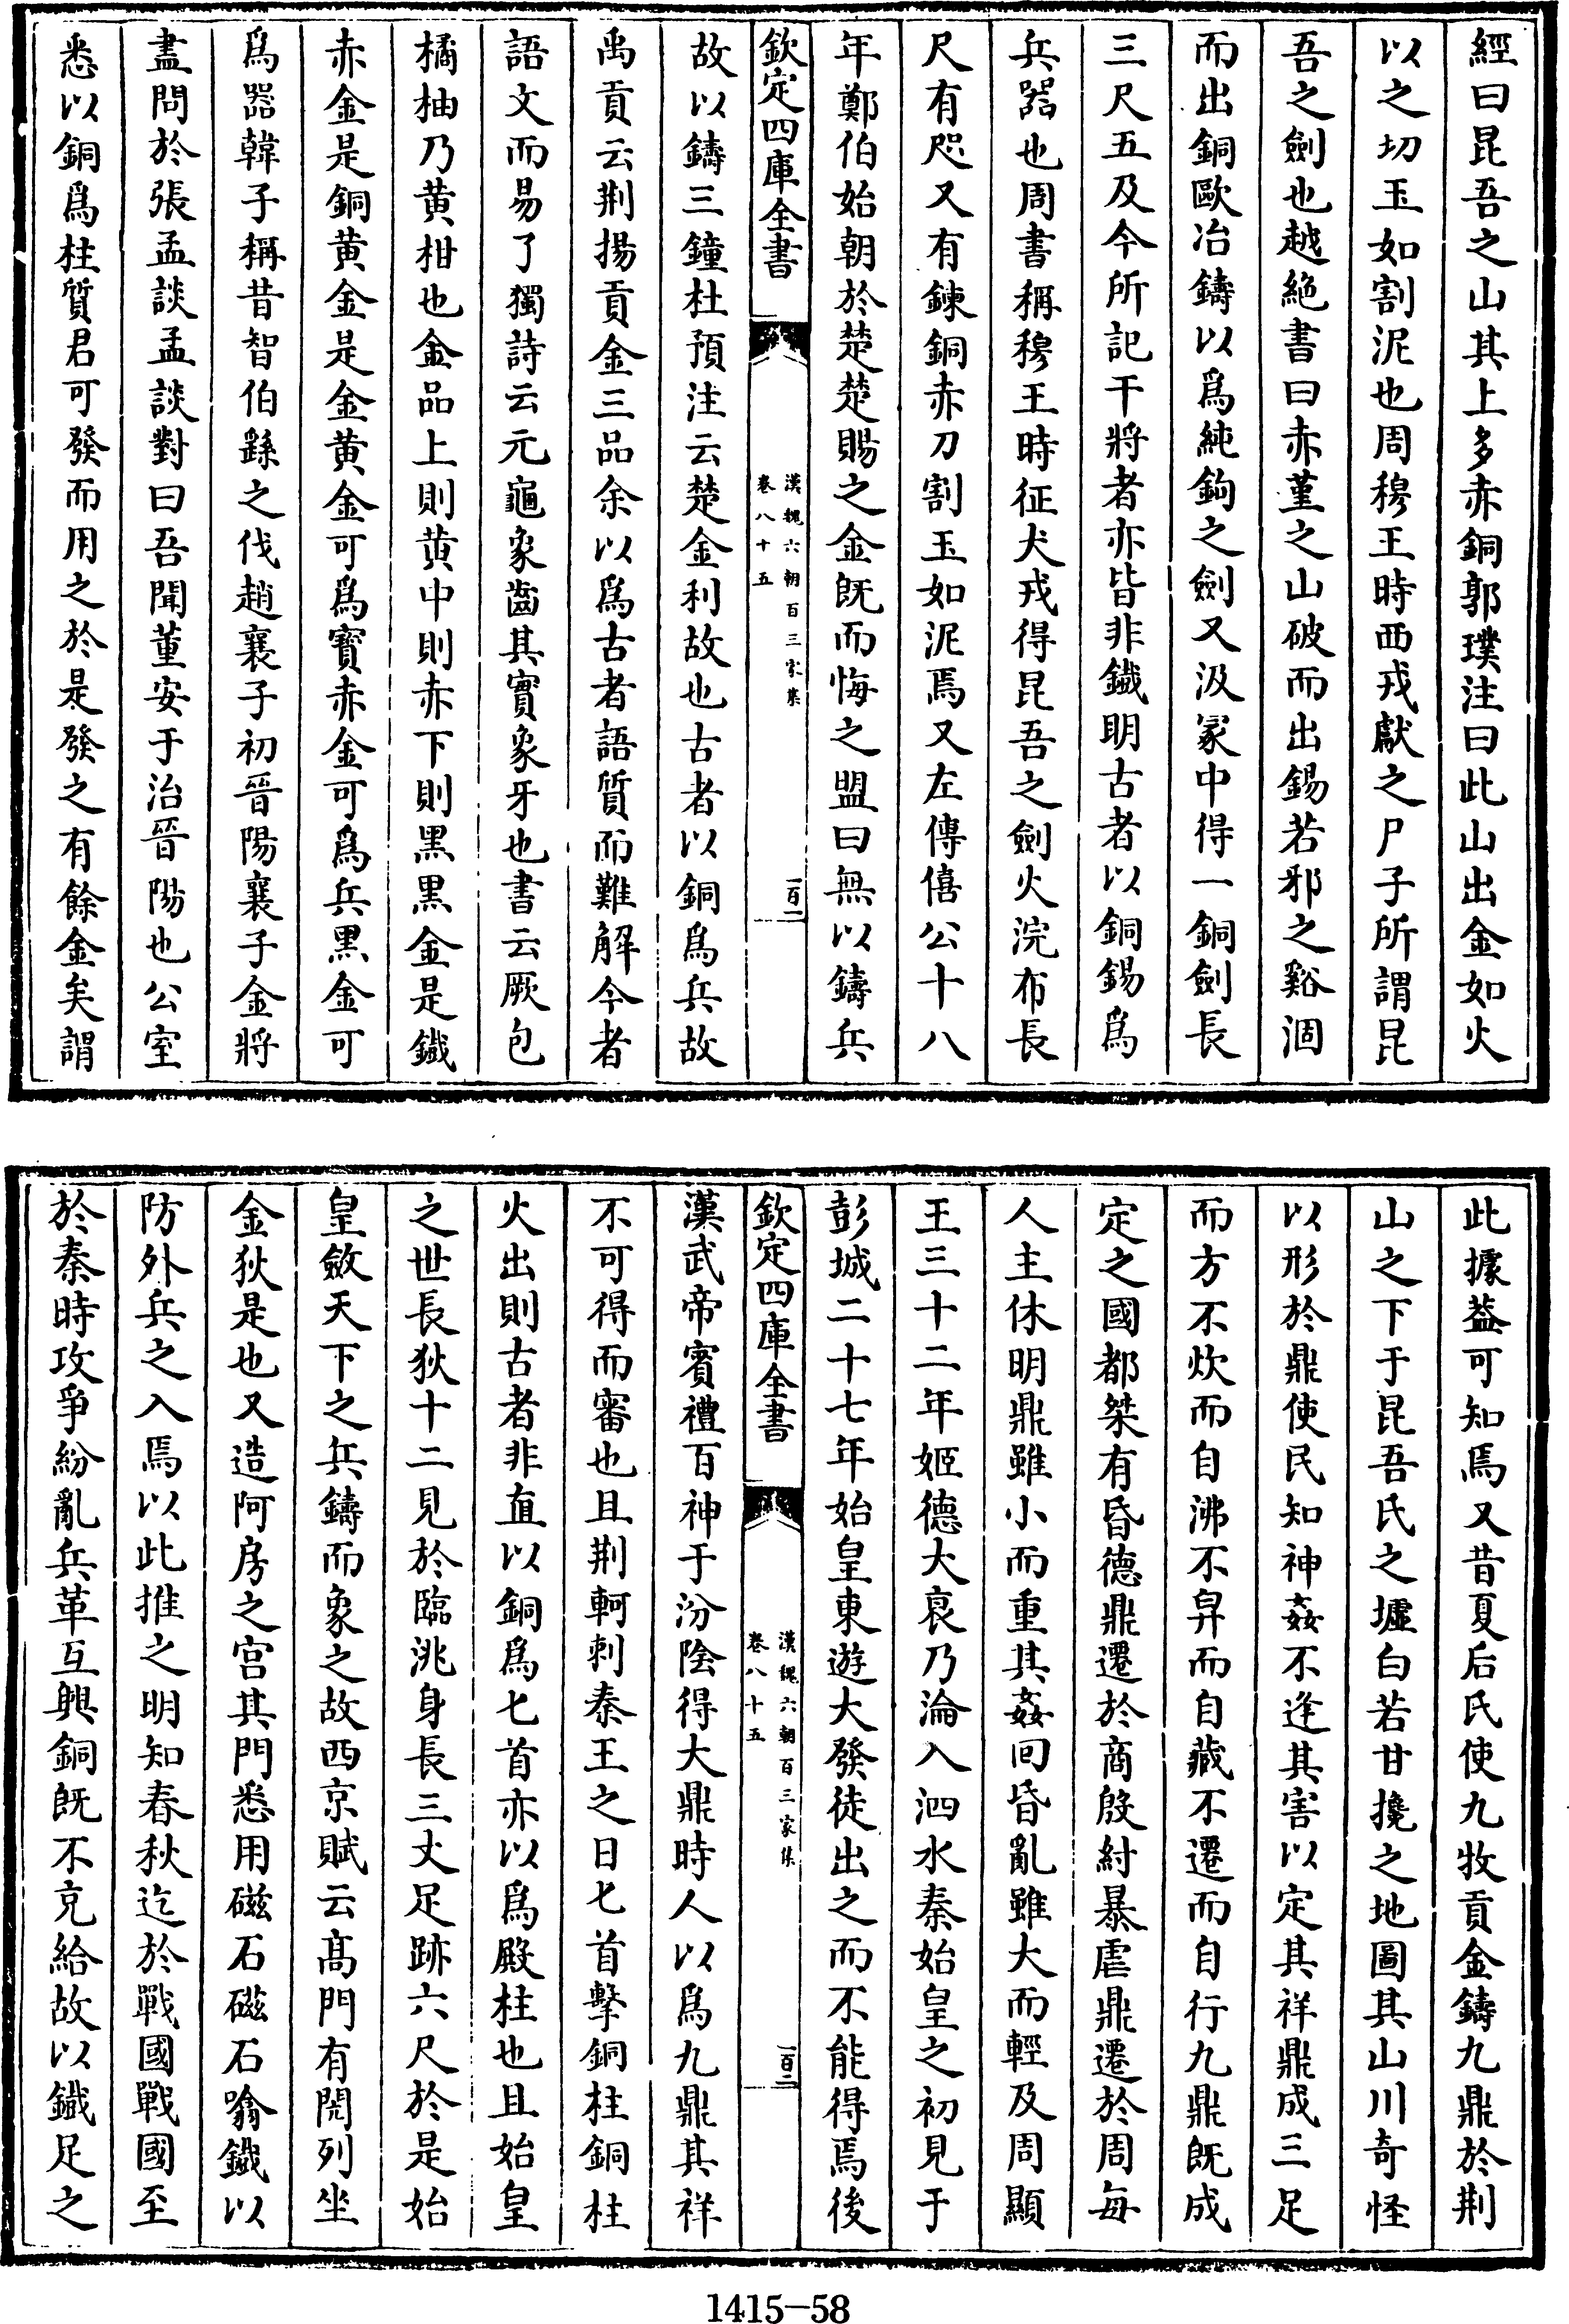 經曰昆吾之山其上多赤銅郭璞注曰此山出金如火
以之切玉如割泥也周穆王時西戎獻之尸子所謂昆
吾之劍也越絶書曰赤堇之山破而出錫若邪之谿涸
而出銅歐冶鑄以爲純鉤之劍又汲冢中得一銅劍長
三尺五及今所記干將者亦皆非鐵明古者以銅錫爲
兵器也周書稱穆王時征犬戎得昆吾之劍火浣布長
尺有咫又有鍊銅赤刀割玉如泥焉又左傳僖公十八
年鄭伯始朝於楚楚賜之金既而悔之盟曰無以鑄兵
欽定四庫全書
漢魏六朝百三家集
卷八十五
一百一
故以鑄三鐘杜預注云楚金利故也古者以銅爲兵故
禹貢云荆揚貢金三品余以爲古者語質而難解今者
語文而易了獨詩云元龜象齒其實象牙也書云厥包
橘柚乃黄柑也金品上則黄中則赤下則黑黑金是鐵
赤金是銅黄金是金黄金可爲寳赤金可爲兵黑金可
爲器韓子稱昔智伯繇之伐趙襄子初晉陽襄子金將
盡問於張孟談孟談對曰吾聞董安于治晉陽也公室
悉以銅爲柱質君可發而用之於是發之有餘金矣謂
此據葢可知焉又昔夏后氏使九牧貢金鑄九鼎於荆
山之下于昆吾氏之墟白若甘攙之地圖其山川奇怪
以形於鼎使民知神姦不逢其害以定其祥鼎成三足
而方不炊而自沸不舁而自藏不遷而自行九鼎既成
定之國都桀有昏德鼎遷於商殷紂暴虐鼎遷於周每
人主休明鼎雖小而重其姦回昏亂雖大而輕及周顯
王三十二年姬德大衰乃淪入泗水秦始皇之初見于
彭城二十七年始皇東遊大發徒出之而不能得焉後
欽定四庫全書
漢魏六朝百三家集
卷八十五
一百二
漢武帝賓禮百神于汾陰得大鼎時人以爲九鼎其祥
不可得而審也且荆軻刺秦王之日匕首擊銅柱銅柱
火出則古者非直以銅爲匕首亦以爲殿柱也且始皇
之世長狄十二見於臨洮身長三丈足跡六尺於是始
皇斂天下之兵鑄而象之故西京賦云髙門有閌列坐
金狄是也又造阿房之宫其門悉用磁石磁石噏鐵以
防外兵之入焉以此推之明知春秋迄於戰國戰國至
於秦時攻爭紛亂兵革互興銅既不克給故以鐵足之
1415—58